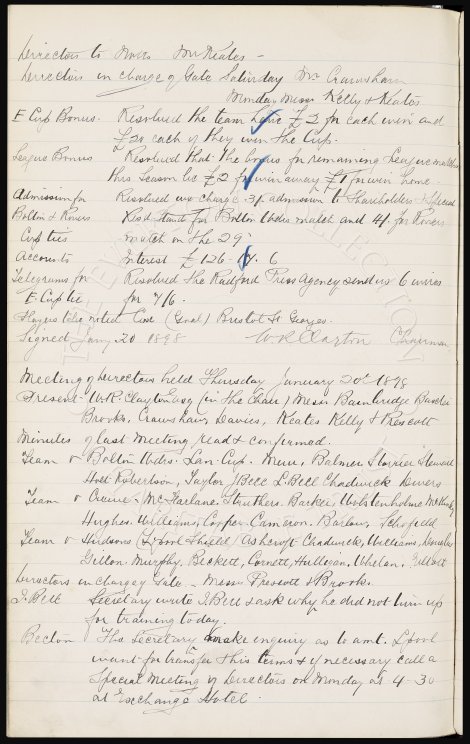 Directors to Notts Mr Keates -
Directors in charge of Gate Saturday Mr Crawshaw
Monday Messrs Kelly & Keates
E Cup Bonus. Resolved the team have £2 for each win and
£20 each if they win the Cup.
League Bonus Resolved that the bonus for remaining League matches
this season be £2 for win away £1 for win home.
Admission for Resolved we charge 3/- admission to Shareholders & Special
Bolton & Rovers Res'd stands for Bolton Wdrs match and 4/- for Rovers
Cup ties match on the 29th
Accounts Interest £126. 6
Telegrams for Resolved the Radford Press Agency send us 6 wires
E. Cup tie for 7/6.
Players Bristol St Georges.
Signed Jany 20 1898 W R Clayton Chairman
Meeting of Directors held Thursday January 20th 1898
Present W.R. Clayton Esq (in the Chair) Messrs Bainbridge Baxter
Brooks, Crawshaw, Davies, Keates Kelly & Prescott
Minutes of last meeting read & confirmed.
Team v Bolton Wdrs. Lan. Cup. Muir, Balmer Storrier Stewart
Holt Robertson, Taylor J Bell L Bell Chadwick Divers
Team v Crewe - McFarlane. Struthers. Barker, Wolstenholme
Hughes. Williams, Cooper. Cameron. Barlow, Schofield
Team v Hudsons (L'pool Shield) Ashcroft Chadwick, Williams,
Gillon. Murphy, Beckett, Cornett, Hulligan, Whelan,
Directors in charge of Gate - Messrs Prescott & Brooks.
J. Bell Secretary write J. Bell & ask why he did not turn up
for training today.
Becton The Secretary make enquiry as to amt. L'pool
want for transfer & his terms & if necessary call a
Special Meeting of Directors on Monday at 4-30
at Exchange Hotel.